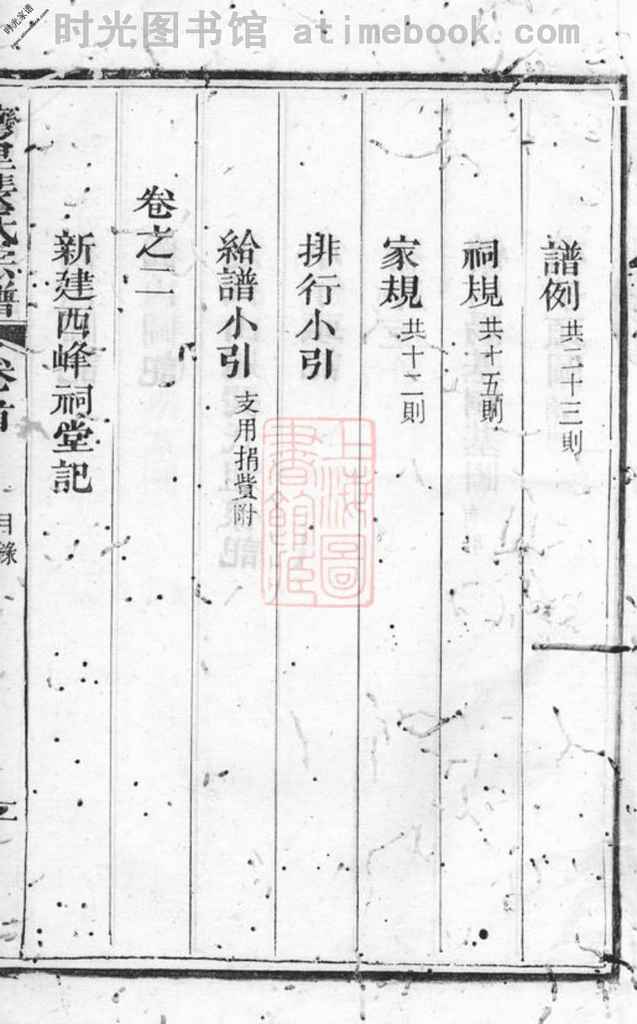 时光图书馆 atimebook.com
時光家谱
譜例 共二十三則
祠規 共十五則
家規 共十二則
排行小引
給譜小引 支用捐費附
卷之二
新建西峰祠堂記
氏宗譜
卷首
目錄
上海圖書館藏